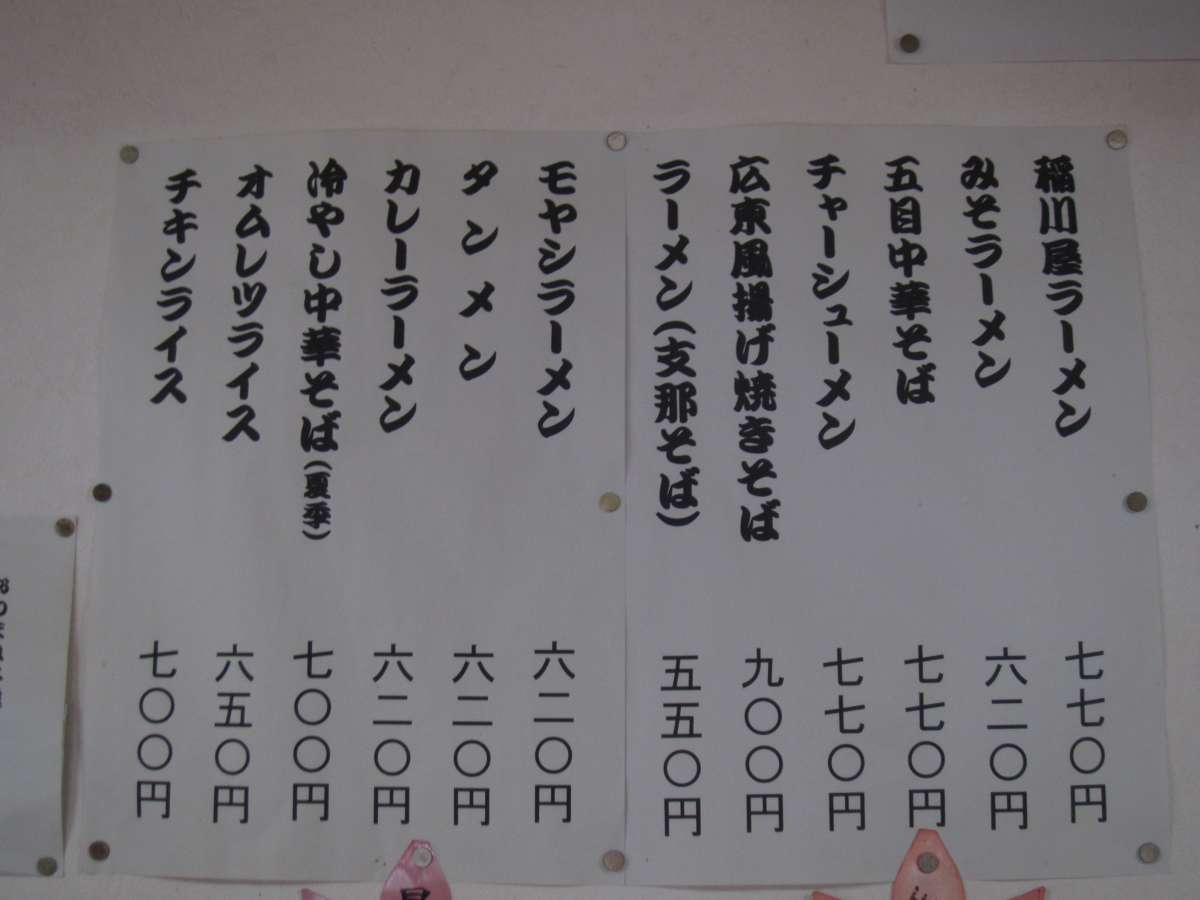 稲川屋ラーメン 七七〇円
みそラーメン 六二〇円
五目中華そば 七七〇円
チャーシューメン 七七〇円
広東風揚げ焼きそば 九〇〇円
ラーメン(支那そば) 五五〇円
モヤシラーメン 六二〇円
タンメン 六二〇円
カレーラーメン 六二〇円
冷やし中華そば(夏季) 七〇〇円
オムレツライス 六五〇円
チキンライス 七〇〇円